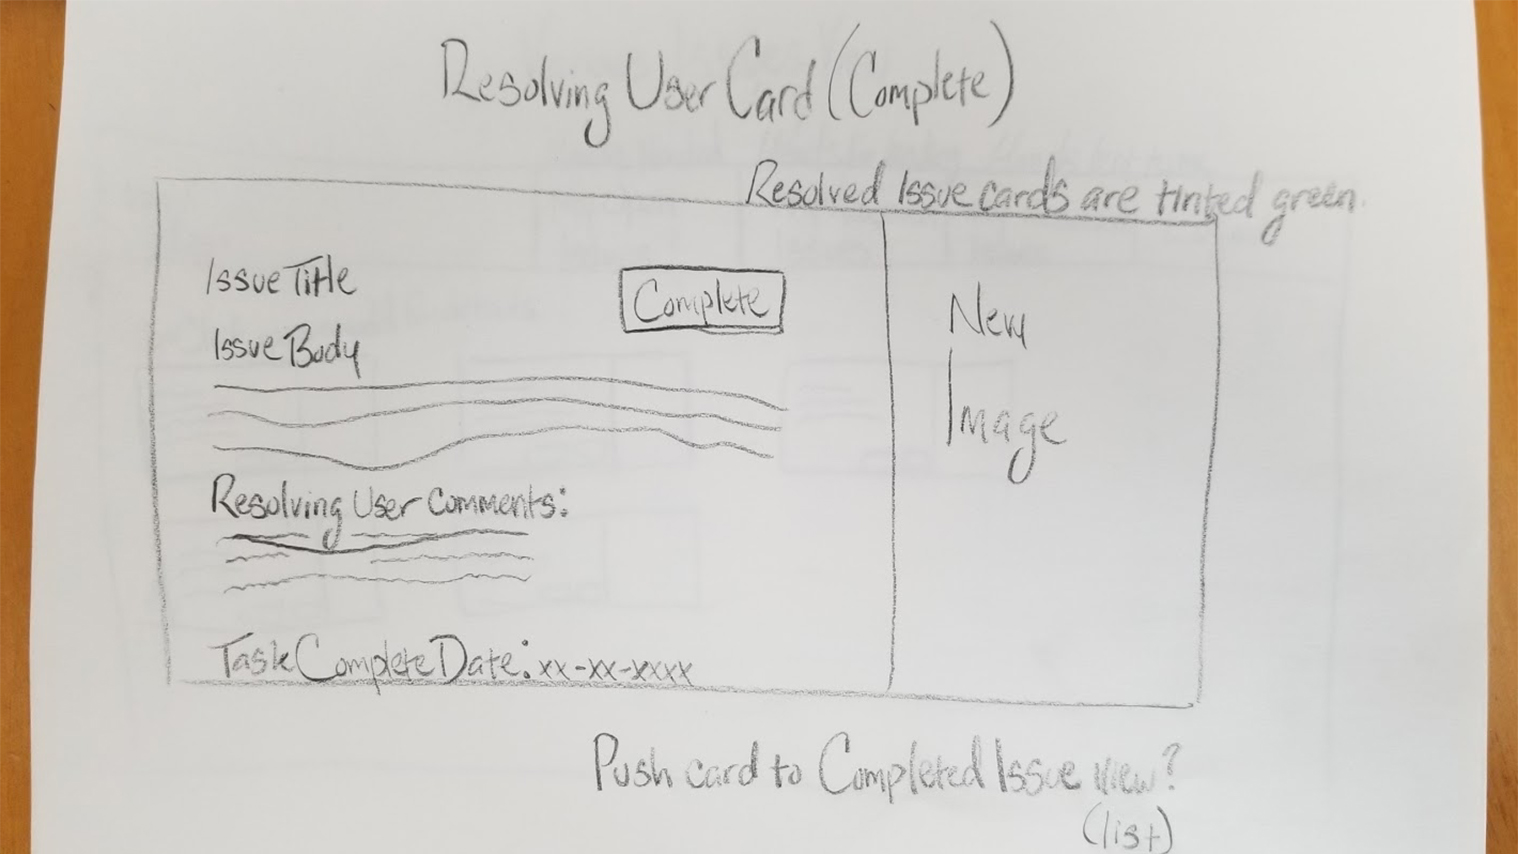 Resolving User Card (Complete)
Resolved Issue cards are tinted green.
Issue Title
Complete
Issue Body
New
Image
Resolving User Comments:
Task Complete Date: xx-xx-xxxx
Push card to Completed Issue view?
(list)